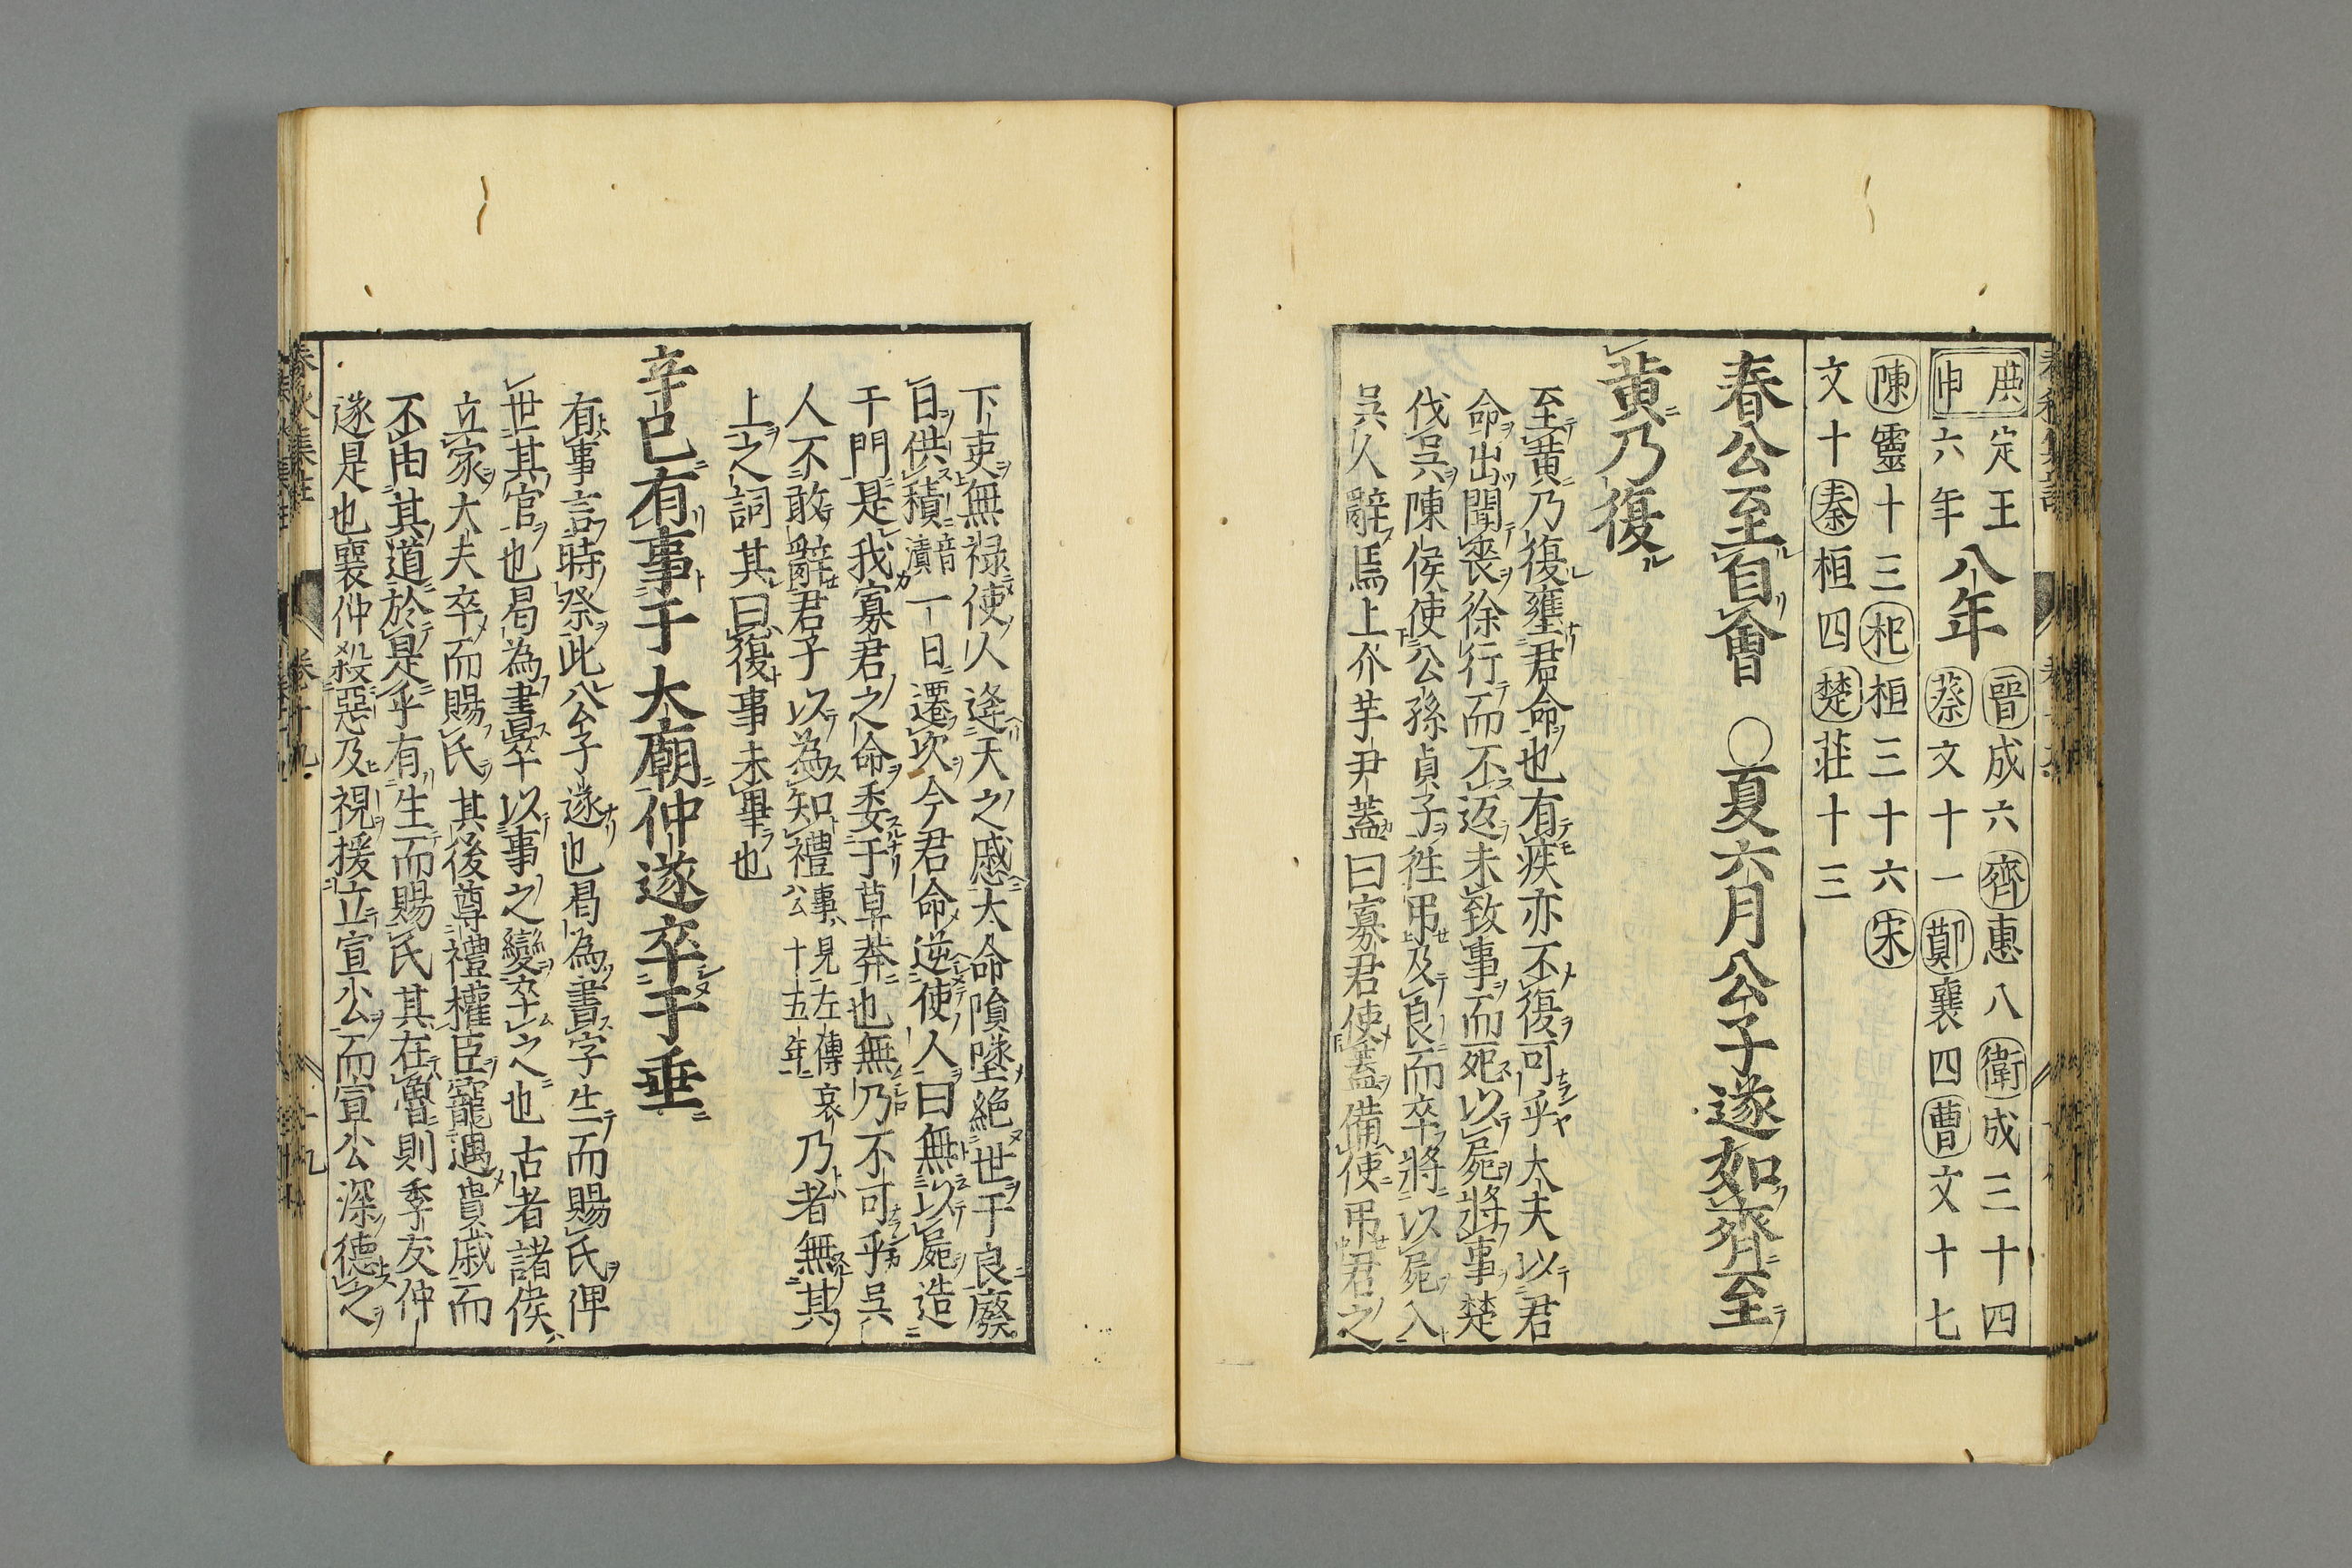 庚申 定王六年 八年 晉成六齊惠八衛成三十四蔡文十一鄭襄四曹文十七
陳靈十三杞桓三十六宋
文十秦桓四楚莊十三
春公至自會〇夏六月公子遂如齊至
黄乃復
至黄乃復壅君命也有疾亦不復可乎大夫以君
命出聞喪徐行而不返未致事而死以屍將事楚
伐吳陳侯使公孫貞子徃弔及良而卒將以屍入
吳人辭焉上介芋尹蓋曰寡君使蓋備使弔君之
下吏無禄使人逢天之慼大命隕墜絶世于良廢
日供積音漬一日遷次今君命逆使人曰無以屍造
于門是我寡君之命委于草莽也無乃不可乎吳
人不敢辭君子以為知禮事見左傳哀公十五年乃者無其
上之詞其曰復事未畢也
辛巳有事于大廟仲遂卒于垂
有事言時祭此公子遂也曷為書字生而賜氏俾
世其官也曷為書卒以事之變卒之也古者諸侯
立家大夫卒而賜氏其後尊禮權臣寵遇貴戚而
不由其道於是乎有生而賜氏其在魯則季友仲
遂是也襄仲殺惡及視援立宣公而宣公深德之
春秋集註 卷十九 十九